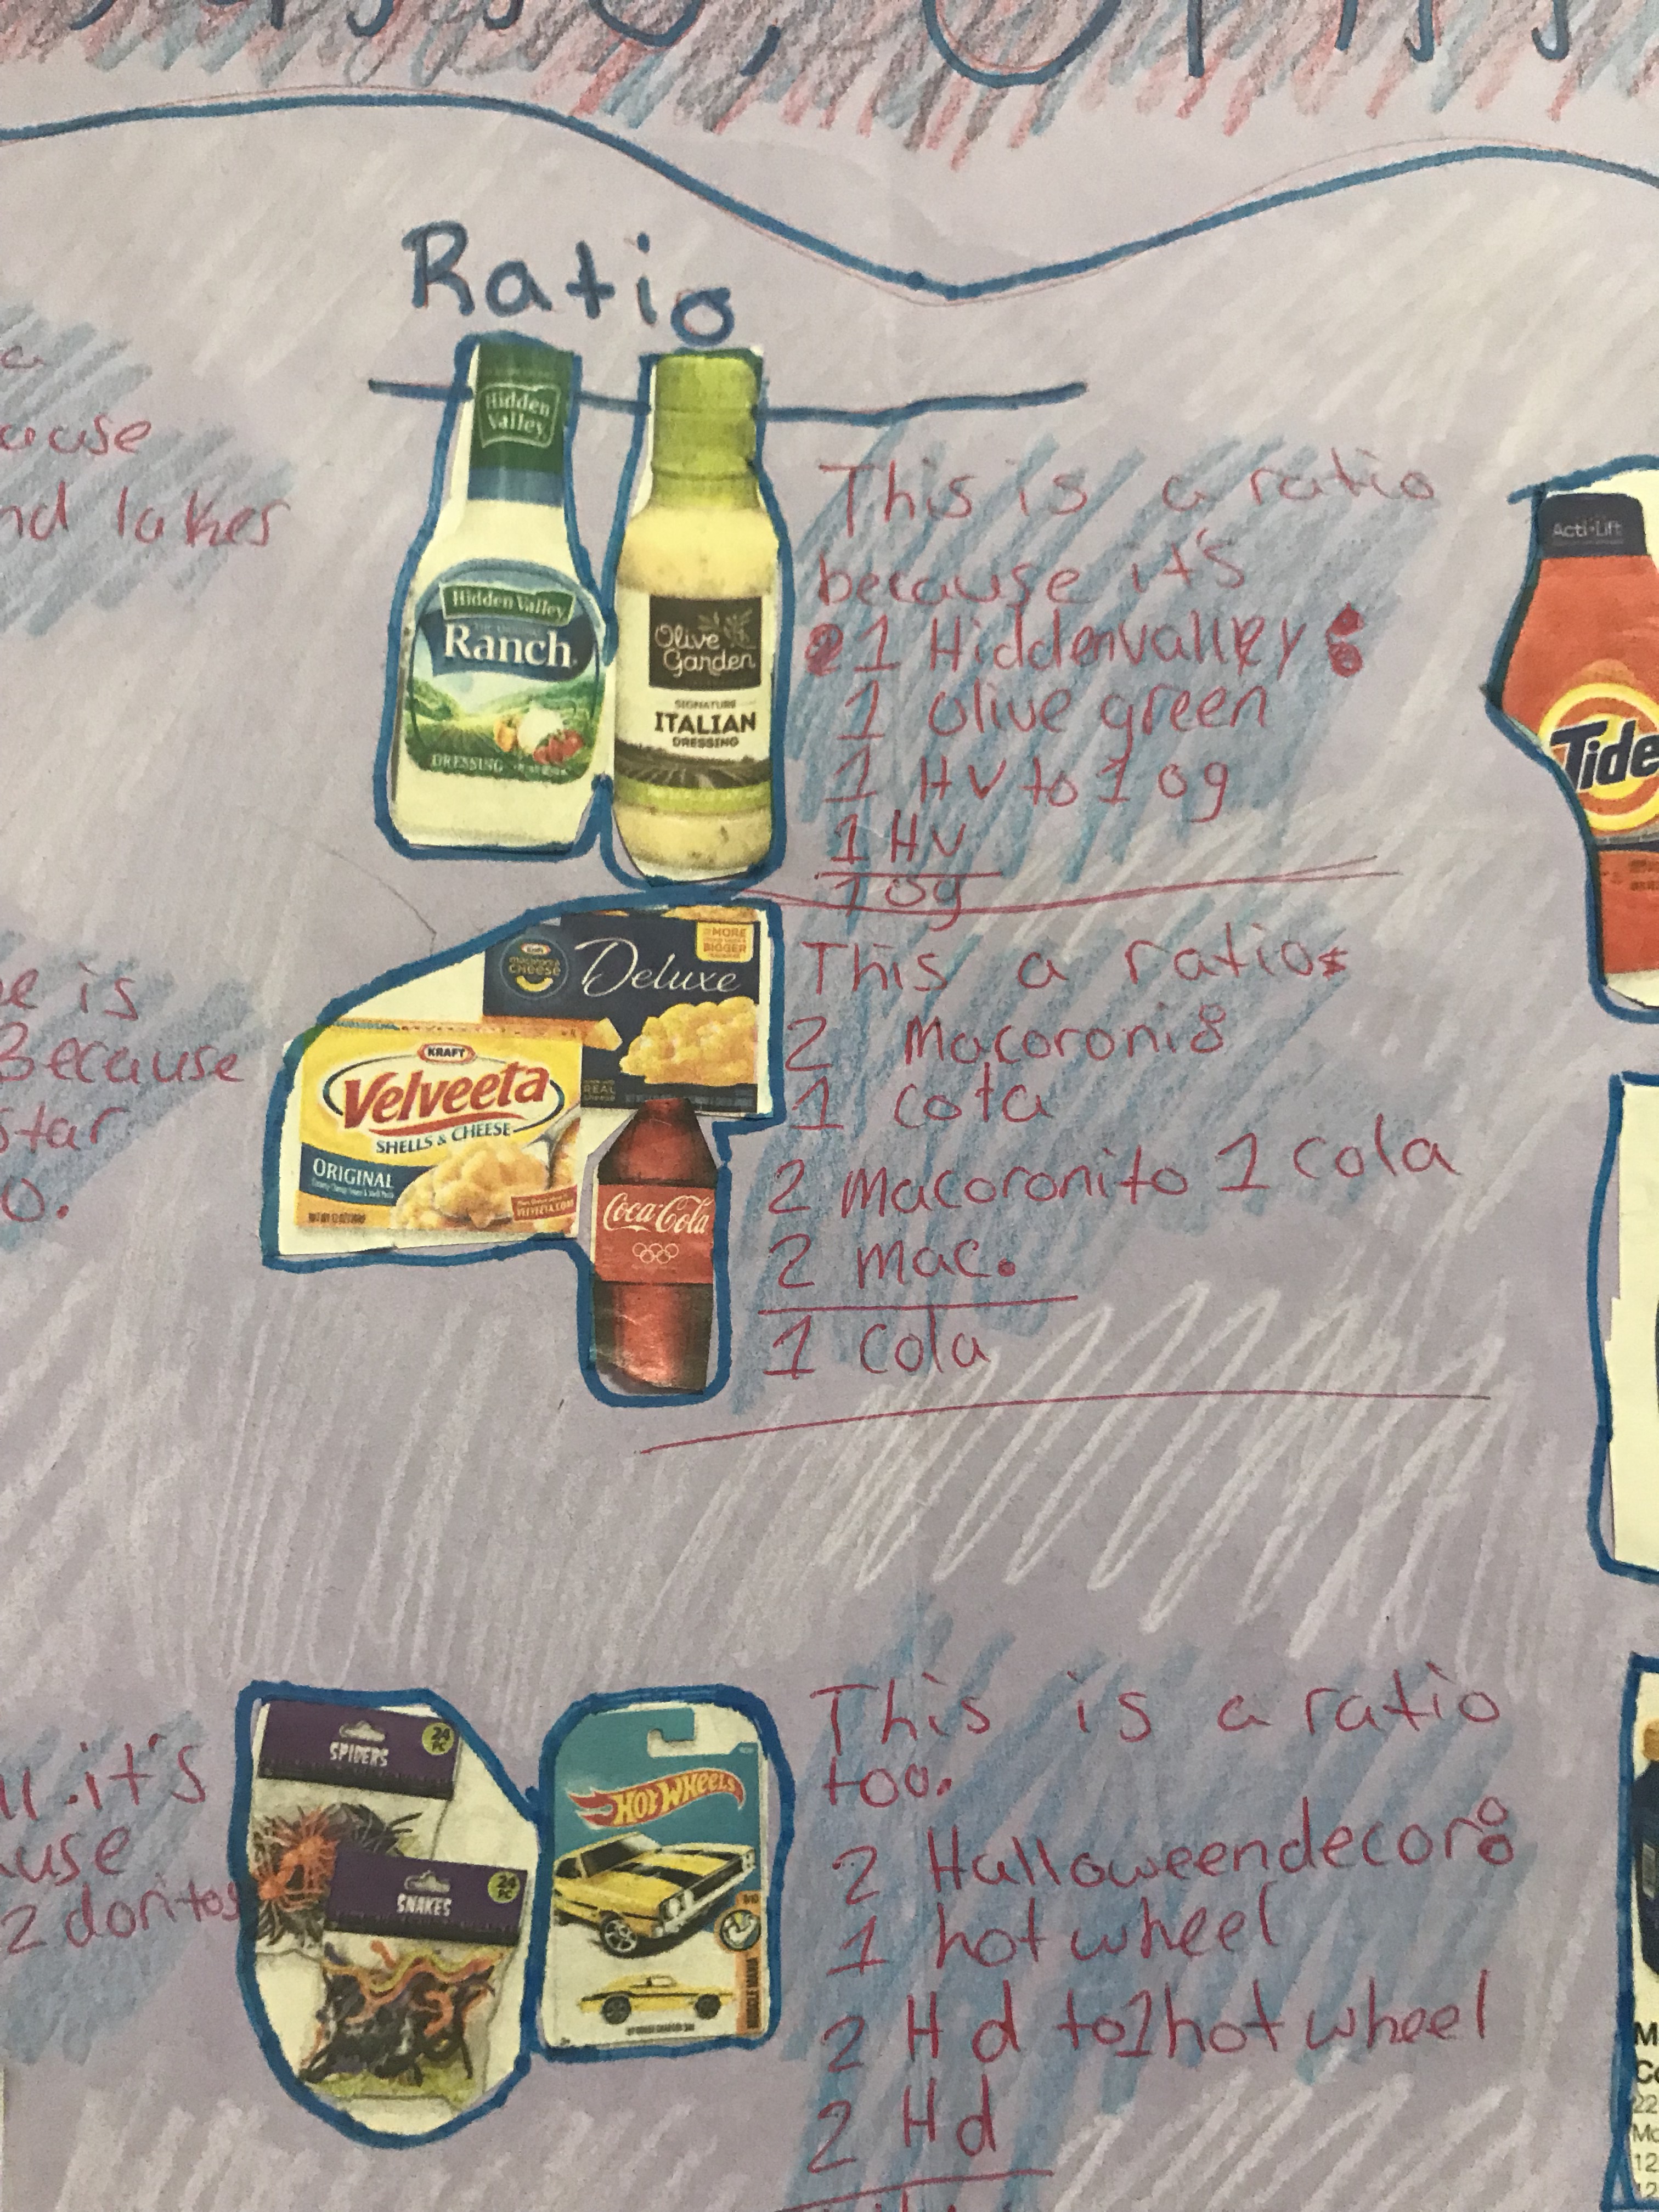 Ratio
Hidden
Valley
Hidden Valley
Ranch
DRESSING
Olive
Garden
SIGNATURE
ITALIAN
DRESSING
This is a ratio
because it's
1 Hiddenvalley :
1 olive green
1 HV to 1 og
1 HV
1 og
MACARONI &
CHEESE
Deluxe
MORE
BIGGER
REAL
KRAFT
Velveeta
SHELLS & CHEESE
ORIGINAL
Coca-Cola
This a ratio:
2 Macoroni:
1 cola
2 Macoroni to 1 cola
2 mac.
1 cola
SPIDERS
24
PC
SNAKES
24
PC
HOT WHEELS
MUSCLE MANIA
This is a ratio
too.
2 Halloweendecor:
1 hot wheel
2 Hd to 1 hot wheel
2 Hd
ause
nd lakes
e is
Because
star
o.
ll it's
ause
2 doritos
Acti-Lift
Tide